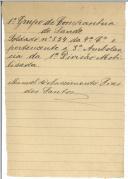 1º Grupo de Companhia
de Saude
Soldado nº 524 da 4ª Cª e
pertencente a 3ª Ambulan
cia da 1ª Divisão Mobi
lisada.
Manuel Nascimento Pires
dos Santos